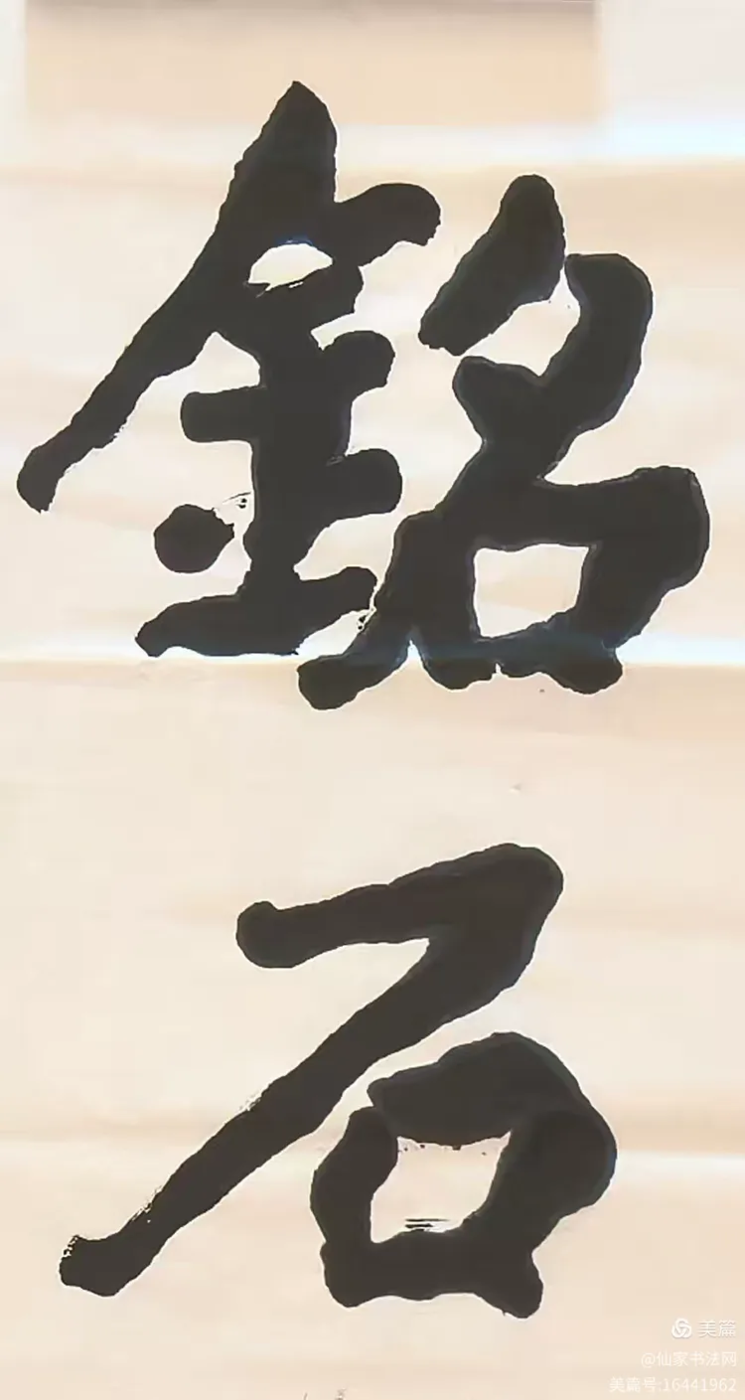 銘
石
美篇
@仙家书法网
美篇号:16441962